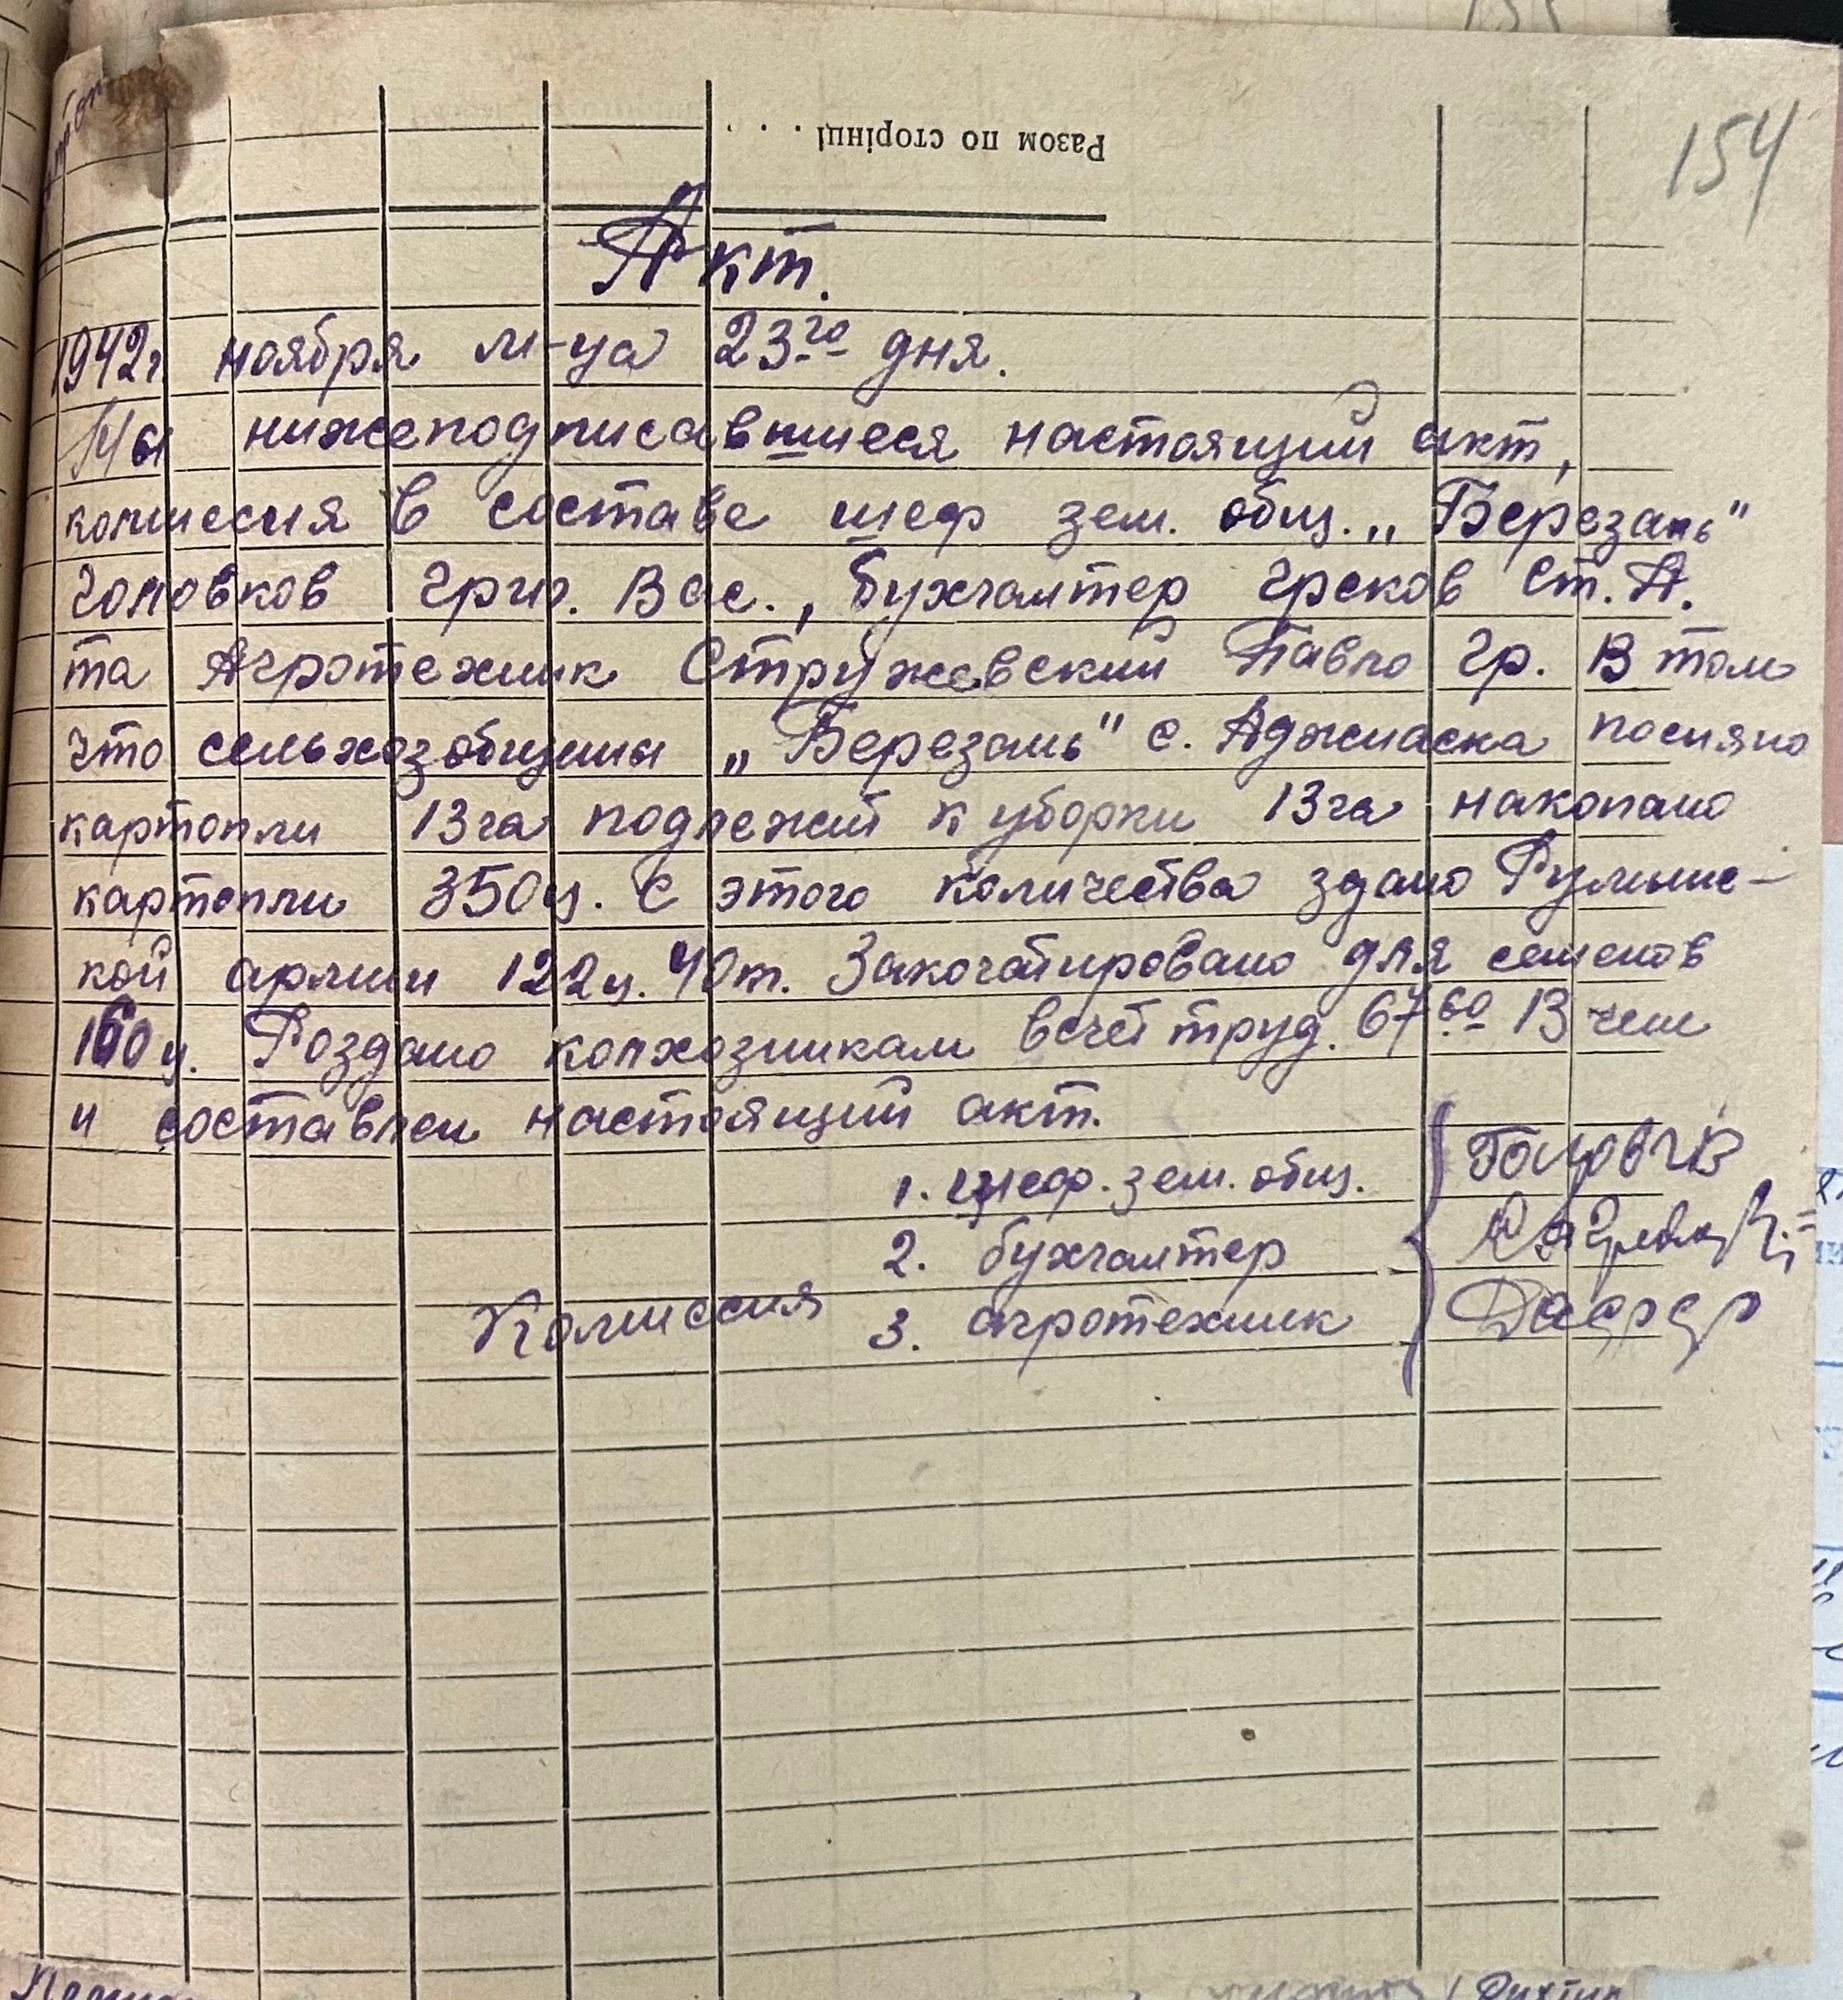 154
Разом по сторінці . . .
Акт.
1942г ноября м-ца 23го дня.
Мы нижеподписавшиеся настоящий акт,
комиссия в составе шеф зем. общ. „Березань"
Головков Григ. Вас., бухгалтер Греков Ст. А.
та Агротехник Стружевский Павло Гр. В том
что сельхозобщины „Березань" с. Аджиаска посияно
картопли 13га подлежит к уборки 13га накопано
картопли 350ц. С этого количества здано Румынс-
кой армии 122ц. 40т. Закогатировано для семенов
160ц. Роздано колхозникам всчет труд. 67 60 В чем
и составлен настоящий акт.
1. Шеф. зем. общ.
2. бухгалтер
Комиссия 3. агротехник